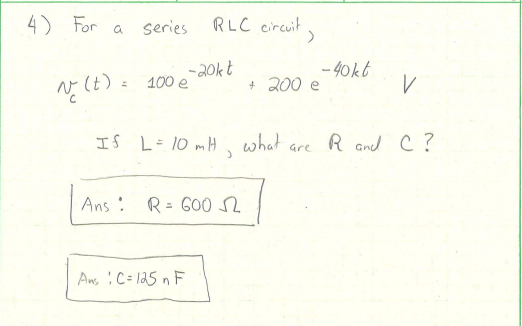 4) For a series RLC circuit,
v_c(t) = 100 e^{-20kt} + 200 e^{-40kt} V
If L = 10 mH, what are R and C?
Ans: R = 600 Ω
Ans: C = 125 nF